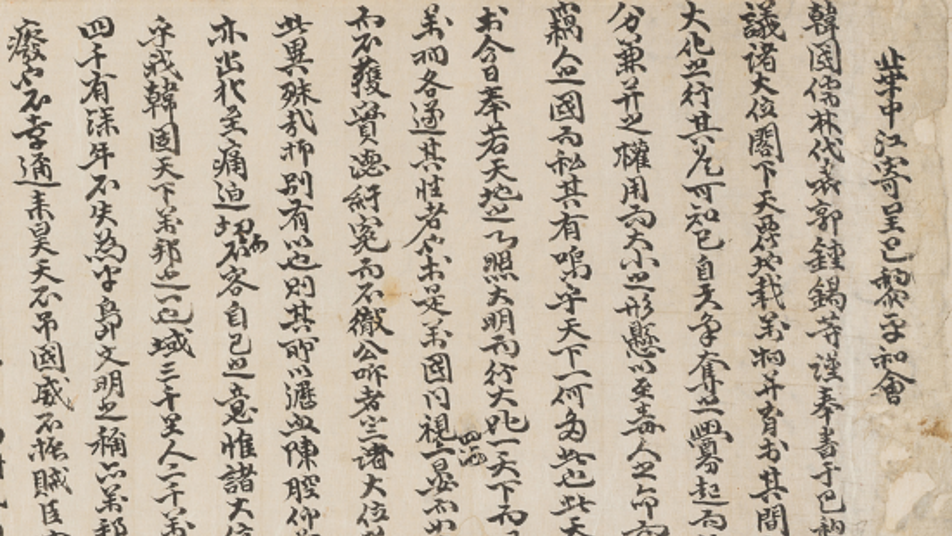 華中江寄呈巴黎平和會
韓國儒林代表郭鍾錫等謹奉書于巴
議諸大位閣下天覆地載萬物并育於其間
大化之行其光可知已自夫爭奪之釁起而
分兼并之權用而大小之形懸以至毒人之命而
竊人之國而私其有嗚乎天下何多此也此天
於今日奉若天地之心照大明而行大化一天下而
萬物各遂其性者今於是萬國同視四海一
而不獲實惠紆冤而不徹公聽者豈諸大位
此異殊哉抑別有以也則其所以瀝血陳腔仰
亦出於至痛迫切而不容自已之意惟諸大位
乎我韓國天下萬邦之一區域三千里人二千萬
四千有深年不失為半島文明之稱而萬邦
不幸邇來昊天不吊國威不振賊臣